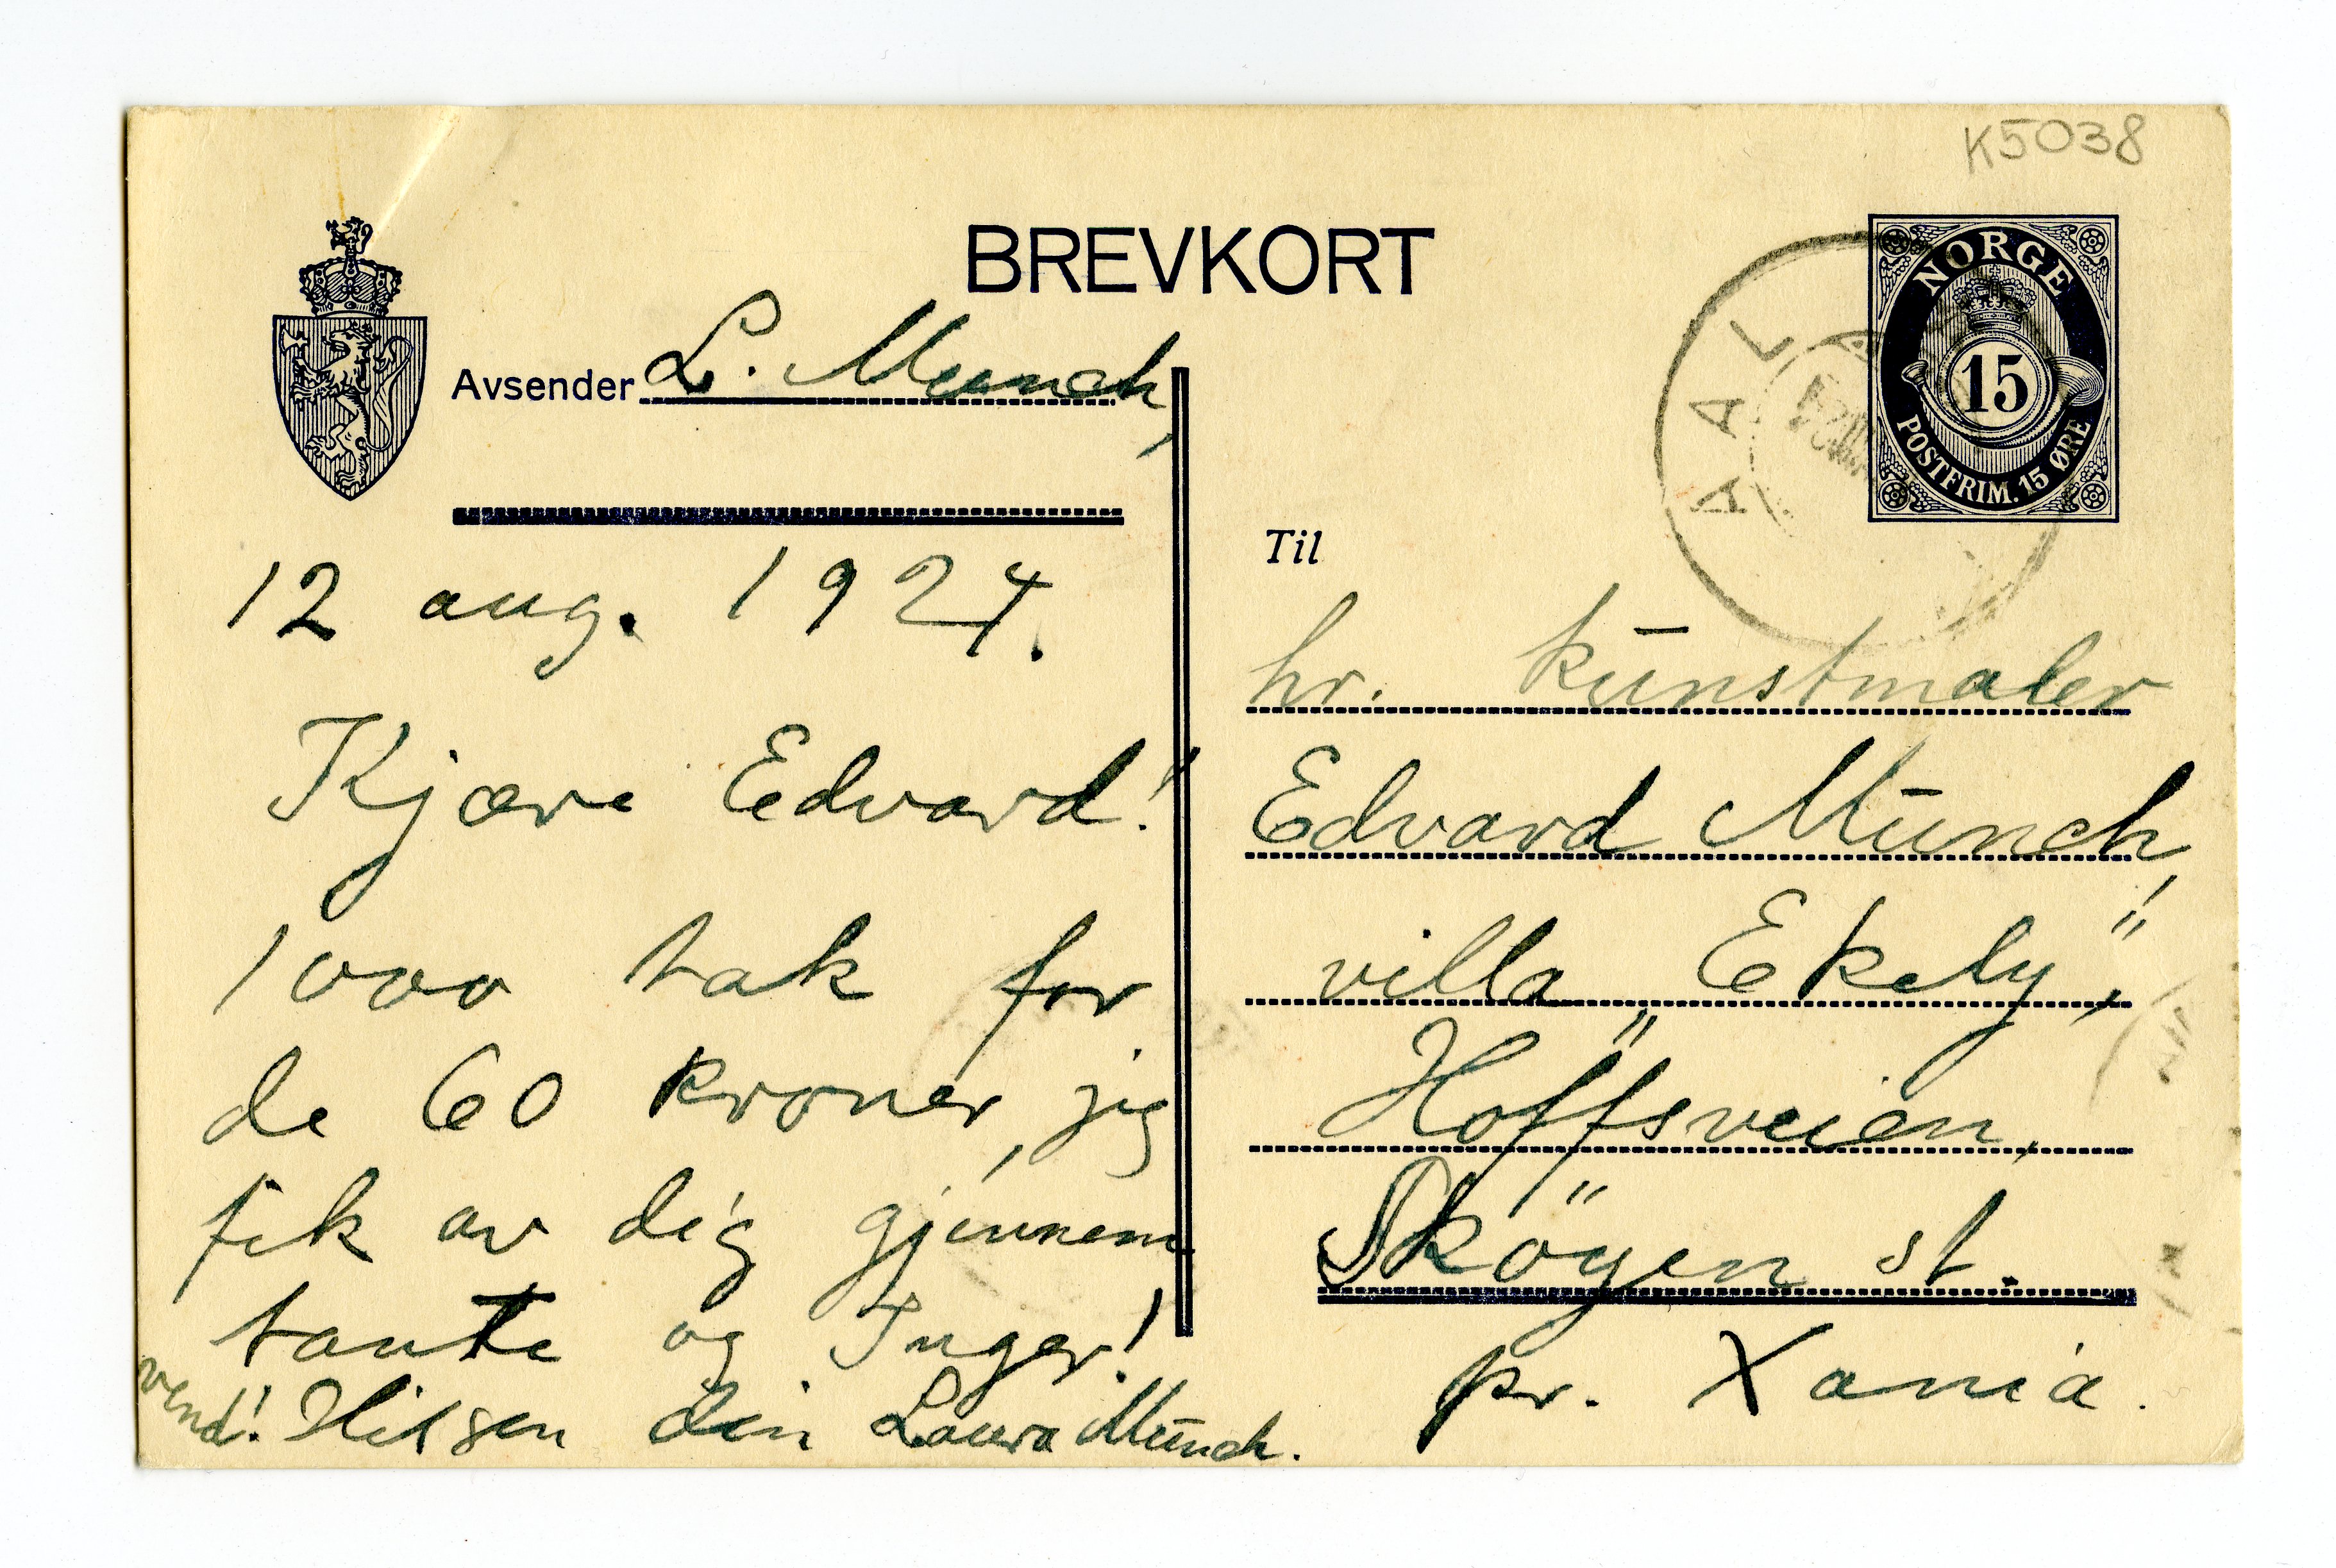 K5038
BREVKORT
NORGE
15
POSTFRIM. 15 ØRE
AAL
Avsender L. Munch,
12 aug. 1924.
Kjære Edvard!
1000 tak for
de 60 kroner, jig
fik av dig gjennem
tante og Inger!
vend! Hilsen din Laura Munch.
Til
hr. kunstmaler
Edvard Munch,
villa "Ekely",
Hoffsveien,
Sköyen st.
pr. Xania.